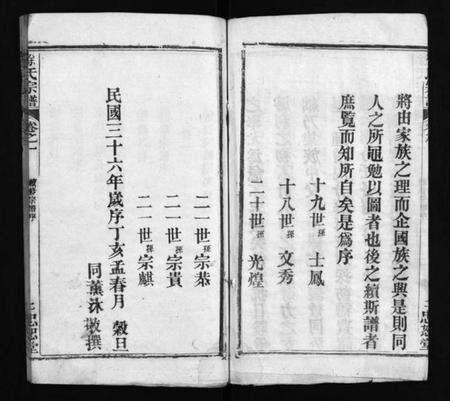 將由家族之理而企國族之興是則同
人之所黽勉以圖者也後之續斯譜者
庶覽而知所自矣是爲序
十九世孫 士鳳
十八世孫 文秀
二十世孫 光煌
二一世孫 宗恭
二一世孫 宗貴
二一世孫 宗麒
民國三十六年歲序丁亥孟春月 穀旦
同薰沐敬撰
氏宗譜
卷之一